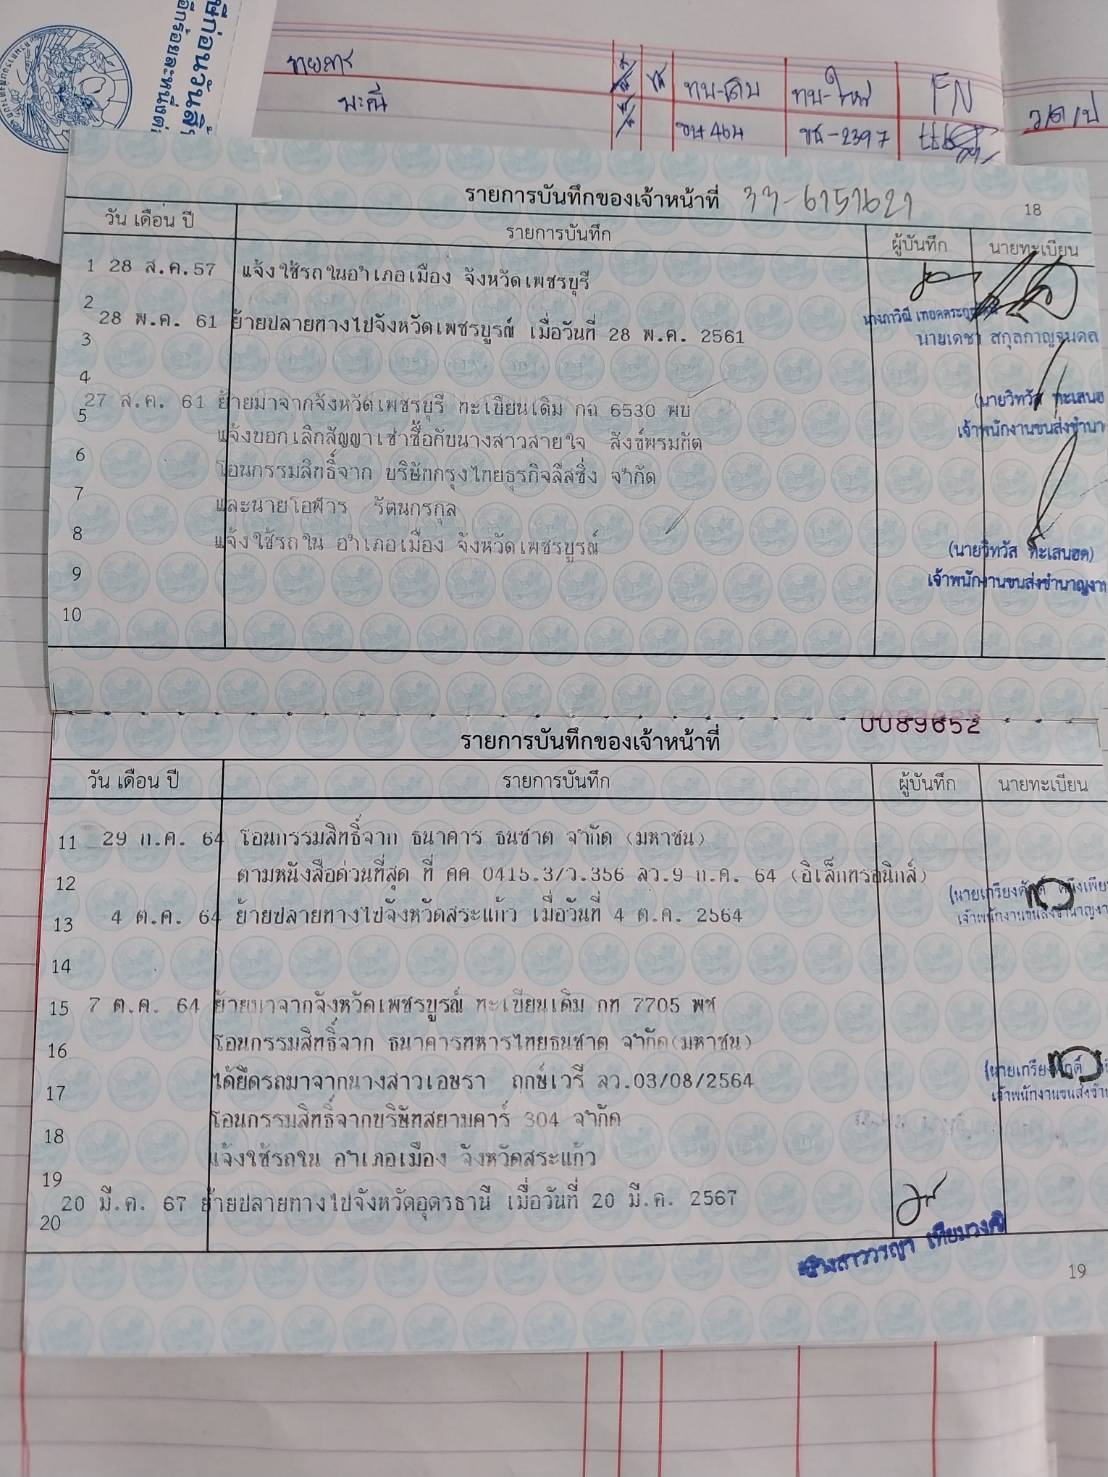 ทบ-เดิม ทบ-ใหม่ FN ว/ด/ป
ขษ-2397
รายการบันทึกของเจ้าหน้าที่
18
วัน เดือน ปี รายการบันทึก ผู้บันทึก นายทะเบียน
1 28 ส.ค.57 แจ้งใช้รถในอำเภอเมือง จังหวัดเพชรบุรี
2
28 พ.ค. 61 ย้ายปลายทางไปจังหวัดเพชรบูรณ์ เมื่อวันที่ 28 พ.ค. 2561
นายเดชา สกุลกาญจนดล
3
4
27 ส.ค. 61 ย้ายมาจากจังหวัดเพชรบุรี ทะเบียนเดิม กฉ 6530 พบ
(นายวิทวัส
5
แจ้งบอกเลิกสัญญาเช่าซื้อกับนางสาวสายใจ สังข์พรมทัต
เจ้าพนักงานขนส่งชำนา
6
โอนกรรมสิทธิ์จาก บริษัทกรุงไทยธุรกิจลีสซิ่ง จำกัด
7
และนายโอฬาร รัตนกรกุล
8
แจ้งใช้รถใน อำเภอเมือง จังหวัดเพชรบูรณ์
(นายวิทวัส
9
เจ้าพนักงานขนส่งชำนาญงาน
10
0089652
รายการบันทึกของเจ้าหน้าที่
วัน เดือน ปี รายการบันทึก ผู้บันทึก นายทะเบียน
11 29 ก.ค. 64 โอนกรรมสิทธิ์จาก ธนาคาร ธนชาต จำกัด (มหาชน)
12 ตามหนังสือด่วนที่สุด ที่ คค 0415.3/ว.356 ลว.9 ก.ค. 64 (อิเล็กทรอนิกส์)
13 4 ต.ค. 64 ย้ายปลายทางไปจังหวัดสระแก้ว เมื่อวันที่ 4 ต.ค. 2564
14
15 7 ต.ค. 64 ย้ายมาจากจังหวัดเพชรบูรณ์ ทะเบียนเดิม กท 7705 พช
16 โอนกรรมสิทธิ์จาก ธนาคารทหารไทยธนชาต จำกัด(มหาชน)
17 ได้ยึดรถมาจากนางสาวเอษรา ฤกษ์เวรี ลว.03/08/2564
18 โอนกรรมสิทธิ์จากบริษัทสยามคาร์ 304 จำกัด
แจ้งใช้รถใน อำเภอเมือง จังหวัดสระแก้ว
19
20 มี.ค. 67 ย้ายปลายทางไปจังหวัดอุดรธานี เมื่อวันที่ 20 มี.ค. 2567
20
19